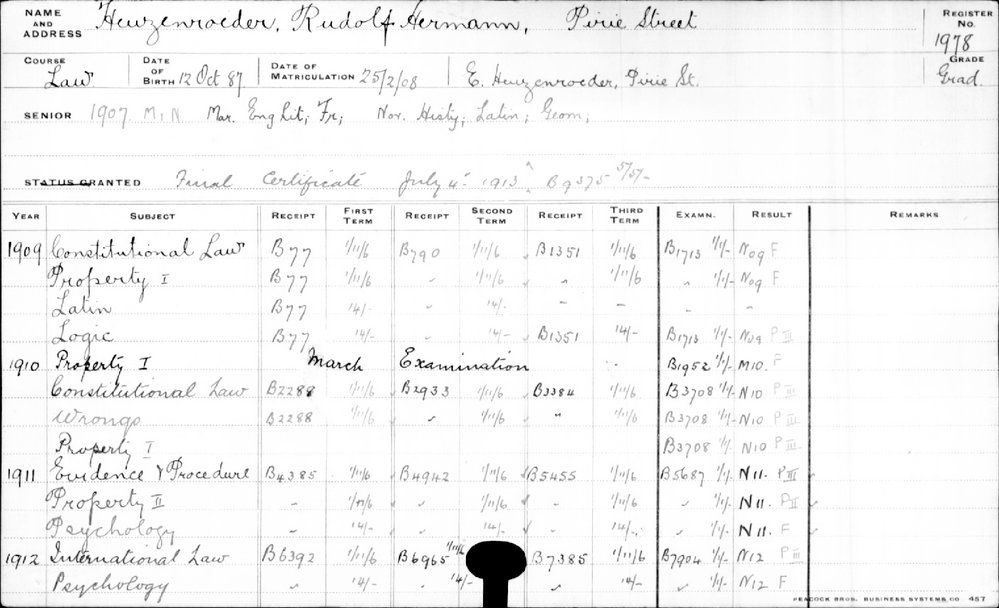 NAME AND ADDRESS Heuzenroeder, Rudolf Hermann, Pirie Street REGISTER No. 1978
COURSE Law DATE OF BIRTH 12 Oct 87 DATE OF MATRICULATION 25/2/08 E. Heuzenroeder, Pirie St. GRADE Grad.
SENIOR 1907 M, N Mar. Eng Lit; Fr; Nov. Histy; Latin; Geom;
STATUS GRANTED Final Certificate July 4" 1913 B9375 5/5/-
YEAR SUBJECT RECEIPT FIRST TERM RECEIPT SECOND TERM RECEIPT THIRD TERM EXAMN. RESULT REMARKS
1909 Constitutional Law B77 1/11/6 B790 1/11/6 B1351 1/11/6 B1713 1/1/- N09 F
Property I B77 1/11/6 " 1/11/6 " 1/11/6 " 1/1/- N09 F
Latin B77 14/- 14/- - - - -
Logic B77 14/- 14/- B1351 14/- B1713 1/1/- N09 P III
1910 Property I March Examination - B1952 1/1/- M10. F
Constitutional Law B2288 1/11/6 B2933 1/11/6 B3384 1/11/6 B3708 1/1/- N10 P III
Wrongs B2288 1/11/6 " 1/11/6 " 1/11/6 B3708 1/1/- N10 P III
Property I B3708 1/1/- N10 P III
1911 Evidence & Procedure B4385 1/11/6 B4942 1/11/6 B5455 1/11/6 B5687 1/1/- N11. P III
Property II - 1/11/6 " 1/11/6 - 1/11/6 " 1/1/- N11. P II
Psychology - 14/- " 14/- " 14/- " 1/1/- N11. F
1912 International Law B6392 1/11/6 B6965 1/11/6 B7385 1/11/6 B7904 1/1/- N12 P III
Psychology " 14/- " 14/- " 14/- " 1/1/- N12 F
PEACOCK BROS. BUSINESS SYSTEMS CO. 457